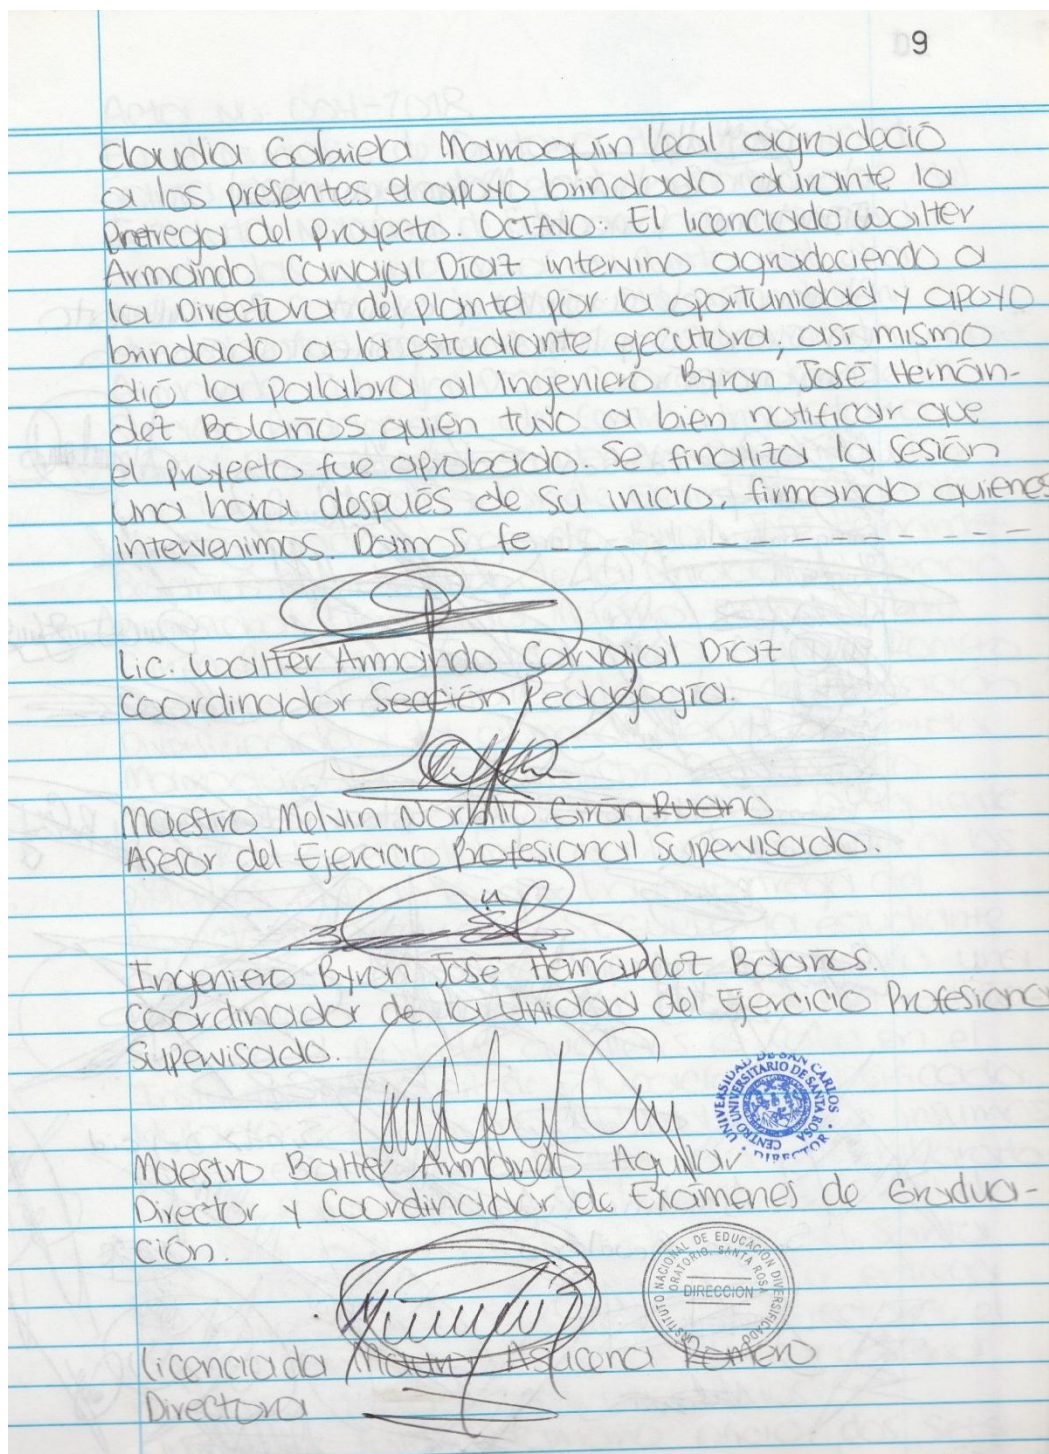 09
Claudia Gabriela Marroquín Leal agradeció
a los presentes el apoyo brindado durante la
entrega del proyecto. OCTAVO: El licenciado Walter
Armando Carvajal Díaz intervino agradeciendo a
la Directora del plantel por la oportunidad y apoyo
brindado a la estudiante ejecutora, así mismo
dió la palabra al Ingeniero Byron José Hernán-
dez Bolaños quién tuvo a bien notificar que
el proyecto fue aprobado. Se finaliza la sesión
una hora después de su inicio, firmando quienes
intervenimos. Damos fe _ _ _ _ _ _ _ _ _ _ _ _
Lic. Walter Armando Carvajal Díaz
Coordinador Sección Pedagogía.
Maestro Melvin Norlhio Girón Ruano
Asesor del Ejercicio Profesional Supervisado.
Ingeniero Byron José Hernández Bolaños.
Coordinador de la Unidad del Ejercicio Profesional
Supervisado.
UNIVERSIDAD DE SAN CARLOS
CENTRO UNIVERSITARIO DE SANTA ROSA
DIRECTOR
Maestro Armando Aguilar
Director y Coordinador de Exámenes de Gradua-
ción.
INSTITUTO NACIONAL DE EDUCACIÓN DIVERSIFICADO
ORATORIO, SANTA ROSA
DIRECCION
Licenciada Azucena Romero
Directora